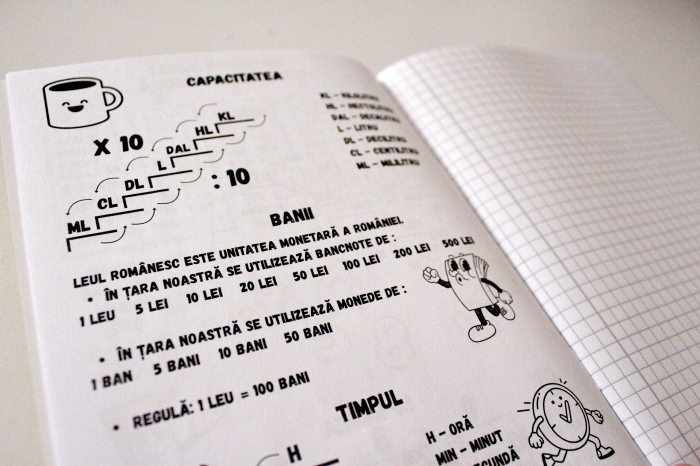 CAPACITATEA
X 10
KL
HL
DAL
L
DL
CL
ML
: 10
KL - KILOLITRU
HL - HECTOLITRU
DAL - DECALITRU
L - LITRU
DL - DECILITRU
CL - CENTILITRU
ML - MILILITRU
BANII
LEUL ROMÂNESC ESTE UNITATEA MONETARĂ A ROMÂNIEI.
• ÎN ȚARA NOASTRĂ SE UTILIZEAZĂ BANCNOTE DE :
1 LEU 5 LEI 10 LEI 20 LEI 50 LEI 100 LEI 200 LEI 500 LEI
• ÎN ȚARA NOASTRĂ SE UTILIZEAZĂ MONEDE DE :
1 BAN 5 BANI 10 BANI 50 BANI
• REGULĂ: 1 LEU = 100 BANI
TIMPUL
H
H - ORĂ
MIN - MINUT